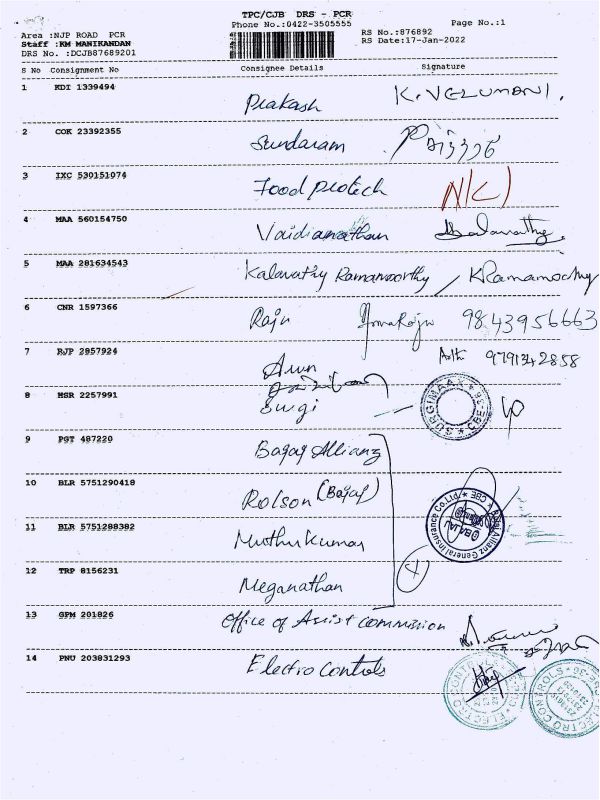 TPC/CJB DRS - PCR
Phone No.:0422-3505555
Page No.:1
Area :NJP ROAD PCR
RS No.:876892
Staff :KM MANIKANDAN
RS Date:17-Jan-2022
DRS No. :DCJB87689201
S No Consignment No Consignee Details Signature
1 KDI 1339494 Prakash K. VELUMANI.
2 COK 23392355 Sundaram
3 IXC 530151074 Food protech N/C)
4 MAA 560154750 Vaidianathan Kalavathy
5 MAA 281634543 Kalavathy Ramamoorthy / KRamamoothy
6 CNR 1597366 Raju 9843956663
7 RJP 2957924 Arun 9791342858
8 MSR 2257991 Surgi
SURGIMAAX * CBE-36
9 PGT 487220 Bajaj Allianz
10 BLR 5751290418 Rolson (Bajaj)
Bajaj Allianz General Insurance Co.Ltd. * CBE *
BAJAJ
11 BLR 5751288382 Muthu Kumar
12 TRP 8156231 Meganathan
4
13 GPM 201826 Office of Assist Commission
14 PNU 203831293 Electro Controls
ELECTRO CONTROLS